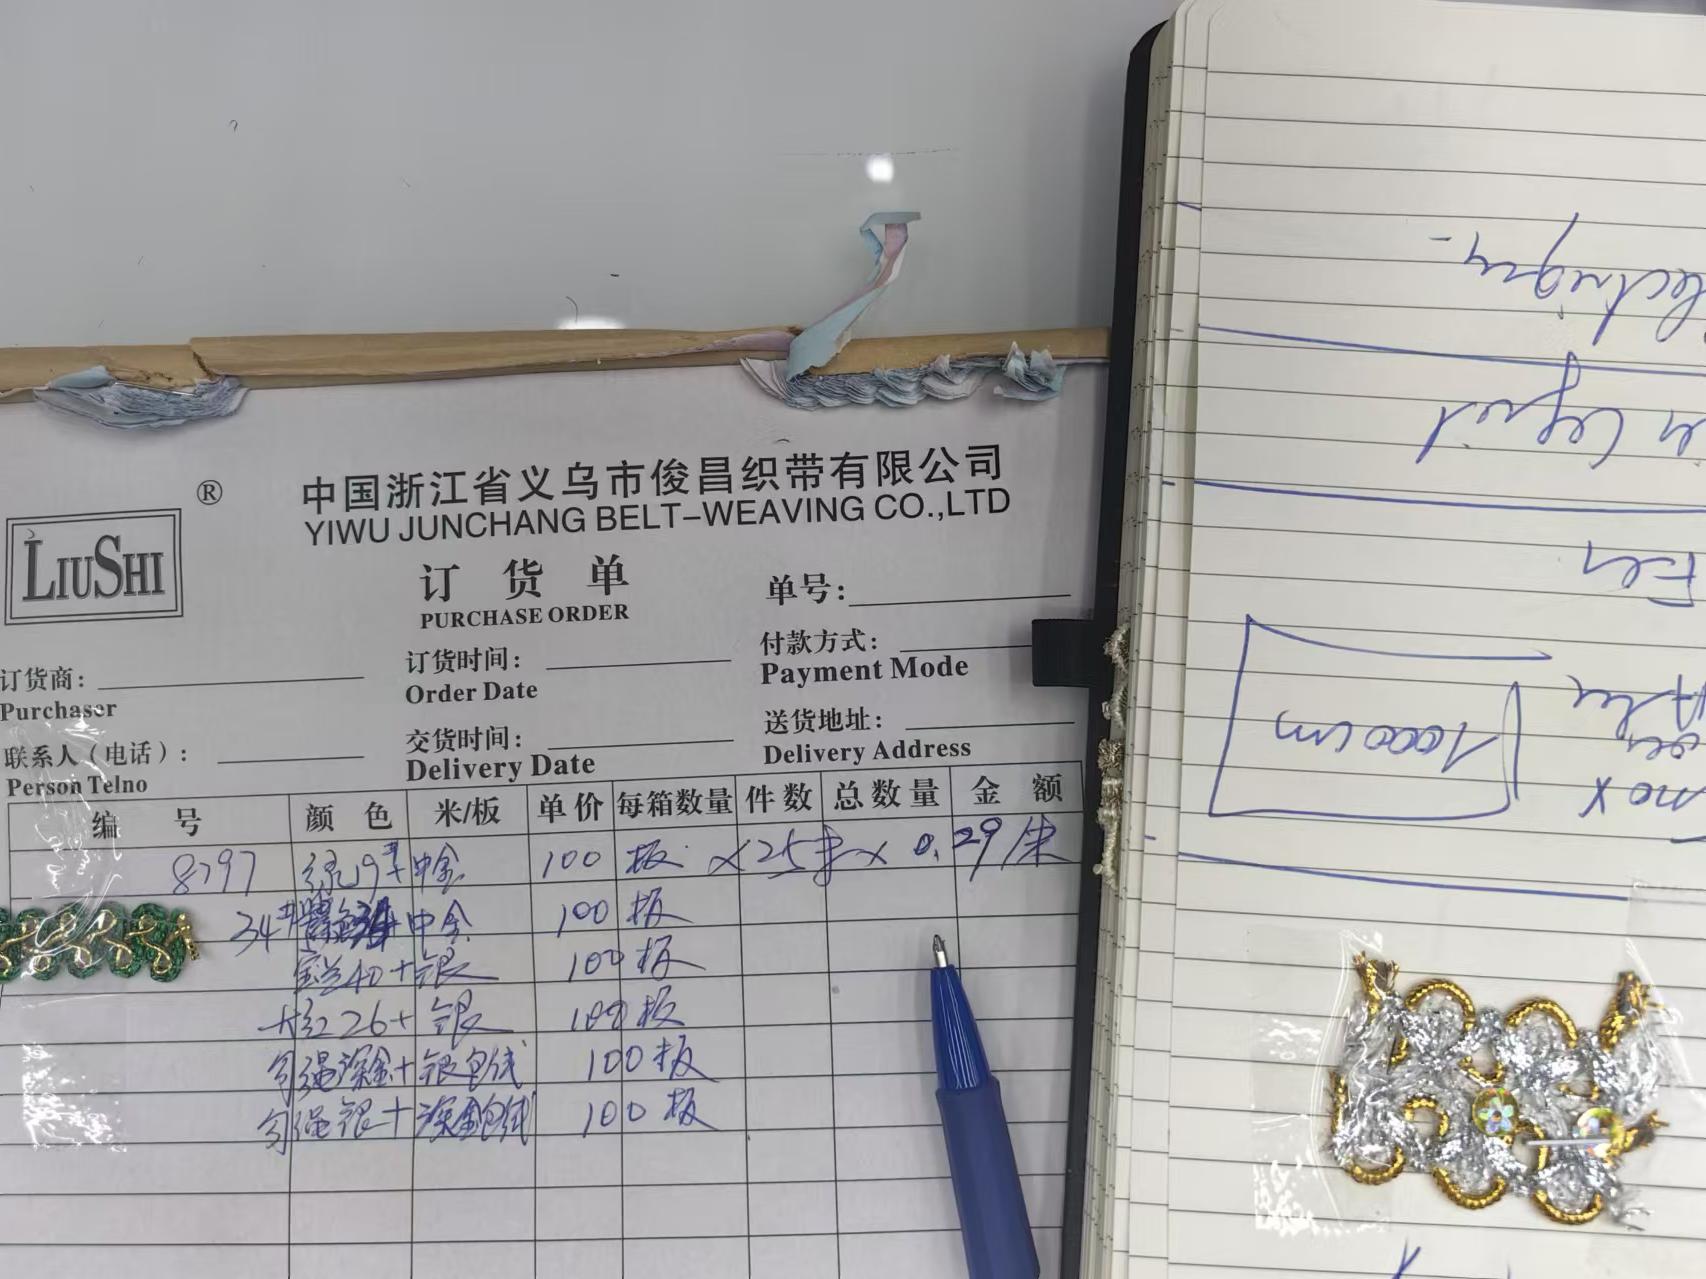 ®
LIUSHI
中国浙江省义乌市俊昌织带有限公司
YIWU JUNCHANG BELT-WEAVING CO.,LTD
订 货 单
PURCHASE ORDER
单号:
订货商:
Purchaser
订货时间:
Order Date
付款方式:
Payment Mode
联系人(电话):
Person Telno
交货时间:
Delivery Date
送货地址:
Delivery Address
编 号 颜 色 米/板 单价 每箱数量 件数 总数量 金 额
8797 绿19#+中金 100 板 x25米x 0.29/米
34# +中金 100板
宝兰40+银 100板
大红26+银 100板
深金+银包线 100板
银+深金包线 100板
1000 cm
max